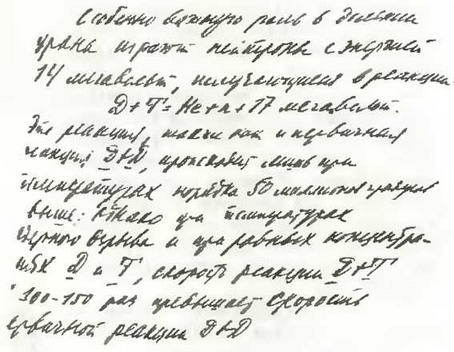 Особенно важную роль в делении
урана играют нейтроны с энергией
14 мегавольт, получающиеся в реакции
D+T=He+n+17 мегавольт.
Эта реакция, также как и первичная
реакция D+D, происходит лишь при
температурах порядка 50 миллионов градусов
выше. Однако при температурах
ядерного взрыва и при равных концентра-
циях D и T, скорость реакции D+T
100-150 раз превышает скорость
первичной реакции D+D